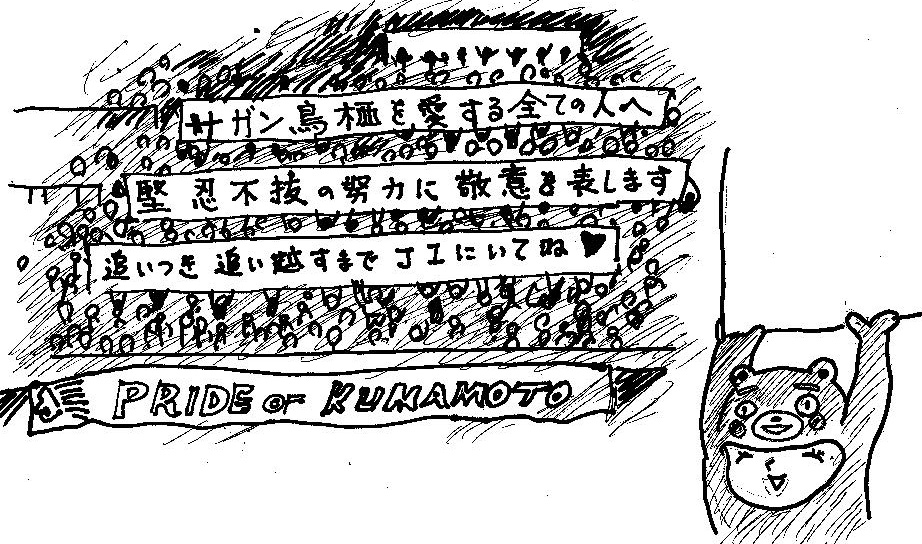 サガン鳥栖を愛する全ての人へ
堅忍不抜の努力に敬意を表します
追いつき追い越すまでJ1にいてね♥
PRIDE OF KUMAMOTO